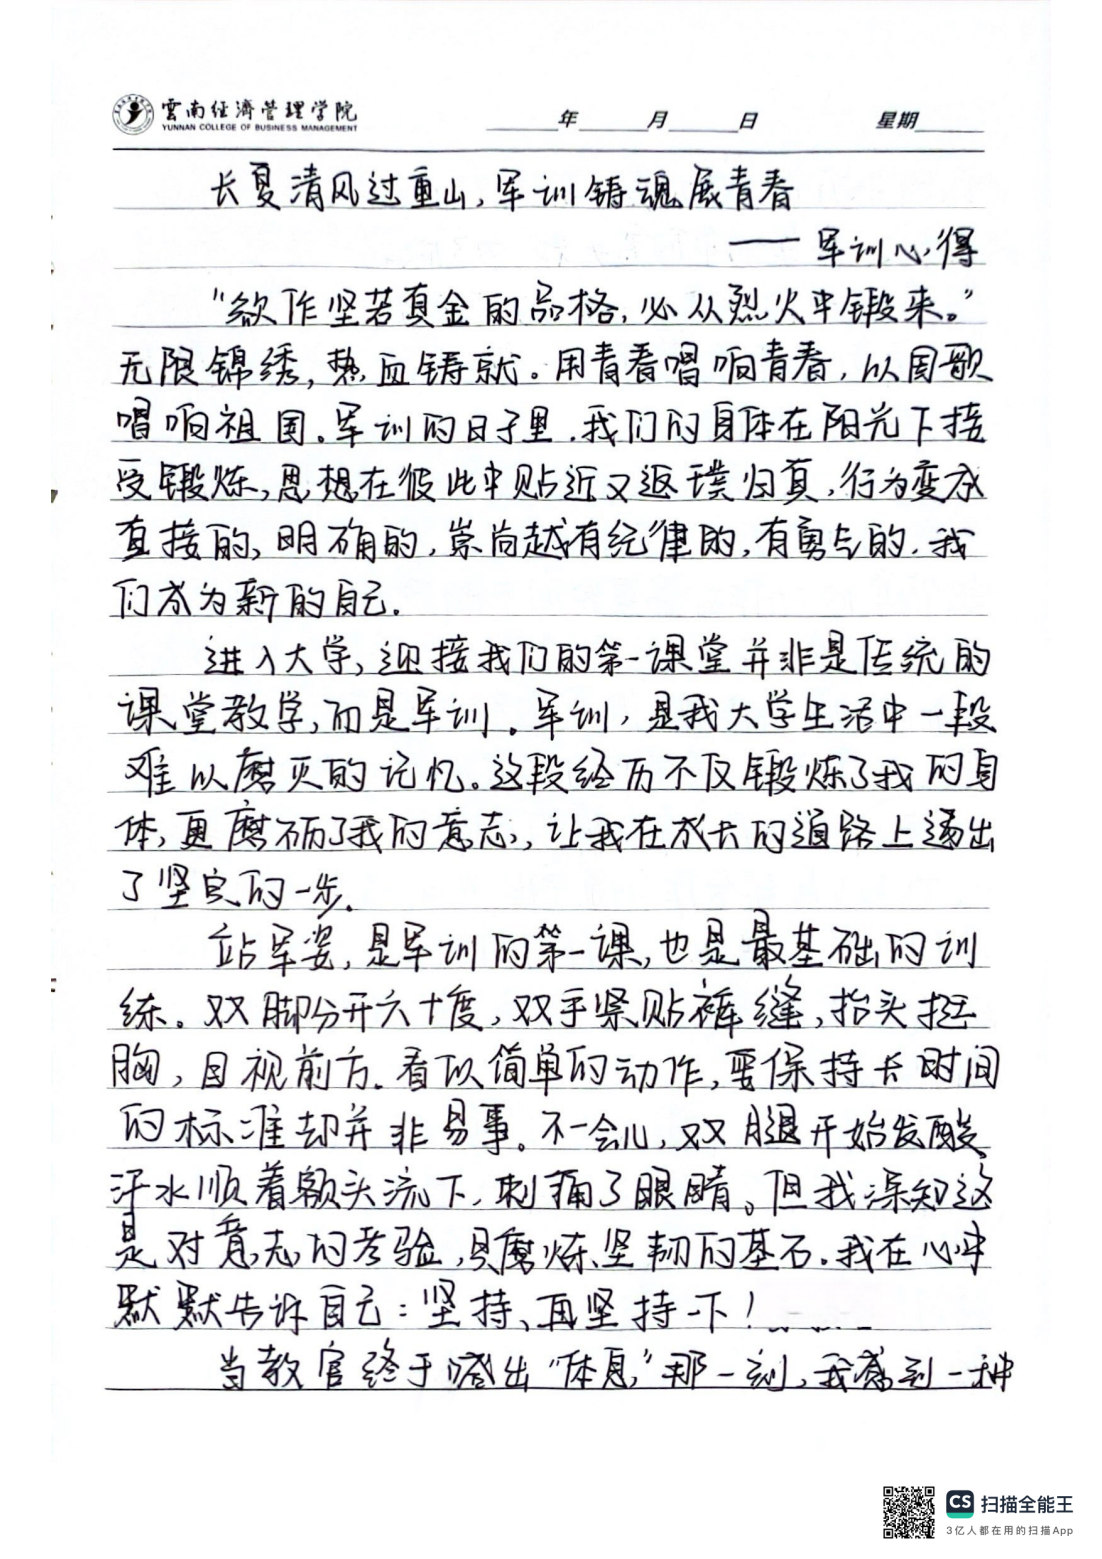 雲南经濟管理学院
YUNNAN COLLEGE OF BUSINESS MANAGEMENT
年 月 日 星期
长夏清风过重山,军训铸魂展青春
——军训心得
“欲作坚若真金的品格,必从烈火中锻来。”
无限锦绣,热血铸就。用青春唱响青春,以国歌
唱响祖国。军训的日子里,我们的身体在阳光下接
受锻炼,思想在彼此中贴近又返璞归真,行为变成
直接的,明确的,崇尚越有纪律的,有勇气的,我
们成为新的自己.
进入大学,迎接我们的第一课堂并非是传统的
课堂教学,而是军训.军训,是我大学生活中一段
难以磨灭的记忆。这段经历不仅锻炼了我的身
体,更磨砺了我的意志,让我在成长的道路上迈出
了坚定的一步.
站军姿,是军训的第一课,也是最基础的训
练。双脚分开六十度,双手紧贴裤缝,抬头挺
胸,目视前方.看似简单的动作,要保持长时间
的标准却并非易事。不一会儿,双腿开始发酸,
汗水顺着额头流下,刺痛了眼睛。但我深知这
是对意志的考验,是磨炼坚韧的基石.我在心中
默默告诉自己:坚持、再坚持一下!
当教官终于喊出“休息”那一刻,我感到一种
CS 扫描全能王
3亿人都在用的扫描App